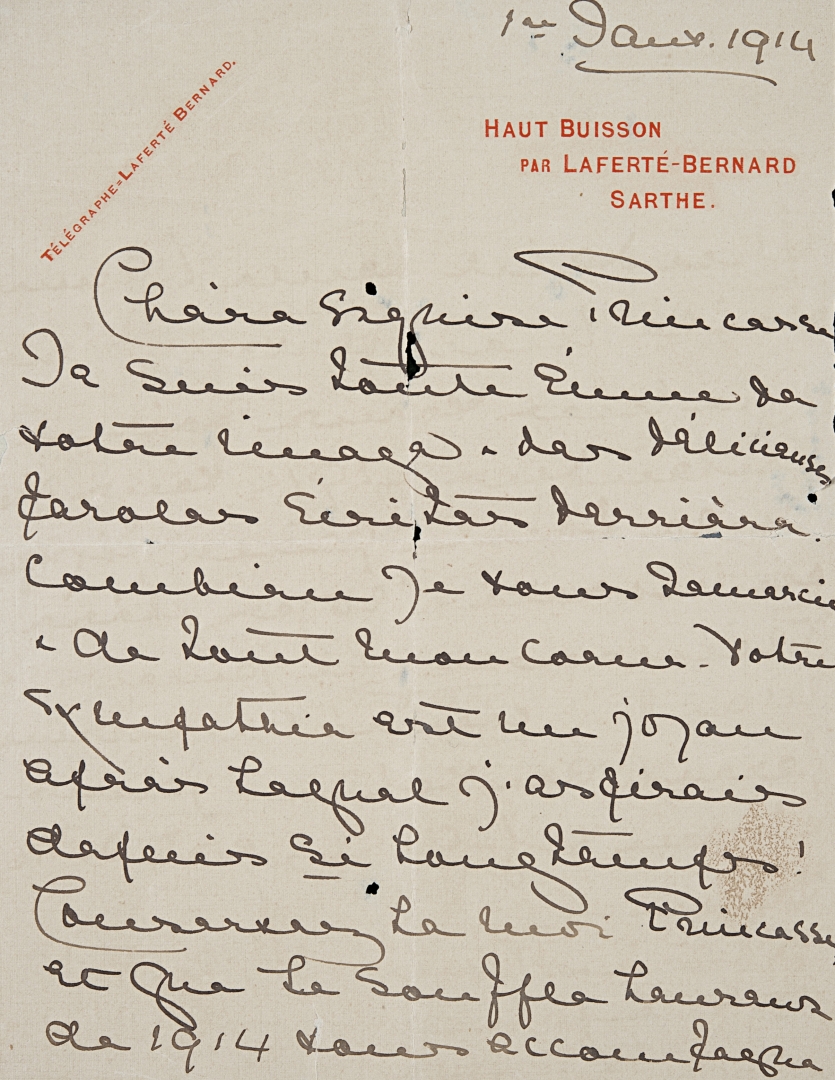 1er Janv. 1914
TÉLÉGRAPHE=LAFERTÉ BERNARD.
HAUT BUISSON
PAR LAFERTÉ-BERNARD
SARTHE.
Chère exquise Princesse
Je suis toute émue de
votre image & des délicieuses
paroles écrites derrière.
Combien je vous remercie
& de tout mon cœur. Votre
sympathie est un joyau
après lequel j'aspirais
depuis si longtemps!
Conservez la moi Princesse
et que le souffle heureux
de 1914 vous accompagne